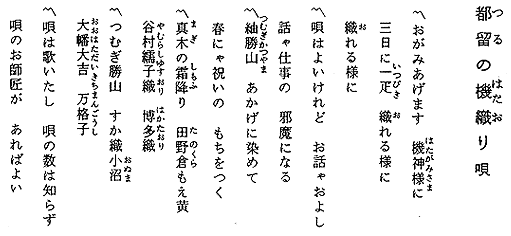 都留の機織り唄
〽おがみあげます 機神様に
三日に一疋 織れる様に
織れる様に
〽唄はよいけれど お話ゃおよし
話ゃ仕事の 邪魔になる
〽紬勝山 あかげに染めて
春にゃ祝いの もちをつく
〽真木の霜降り 田野倉もえ黄
谷村繻子織 博多織
〽つむぎ勝山 すか織小沼
大幡大吉 万格子
〽唄は歌いたし 唄の数は知らず
唄のお師匠が あればよい